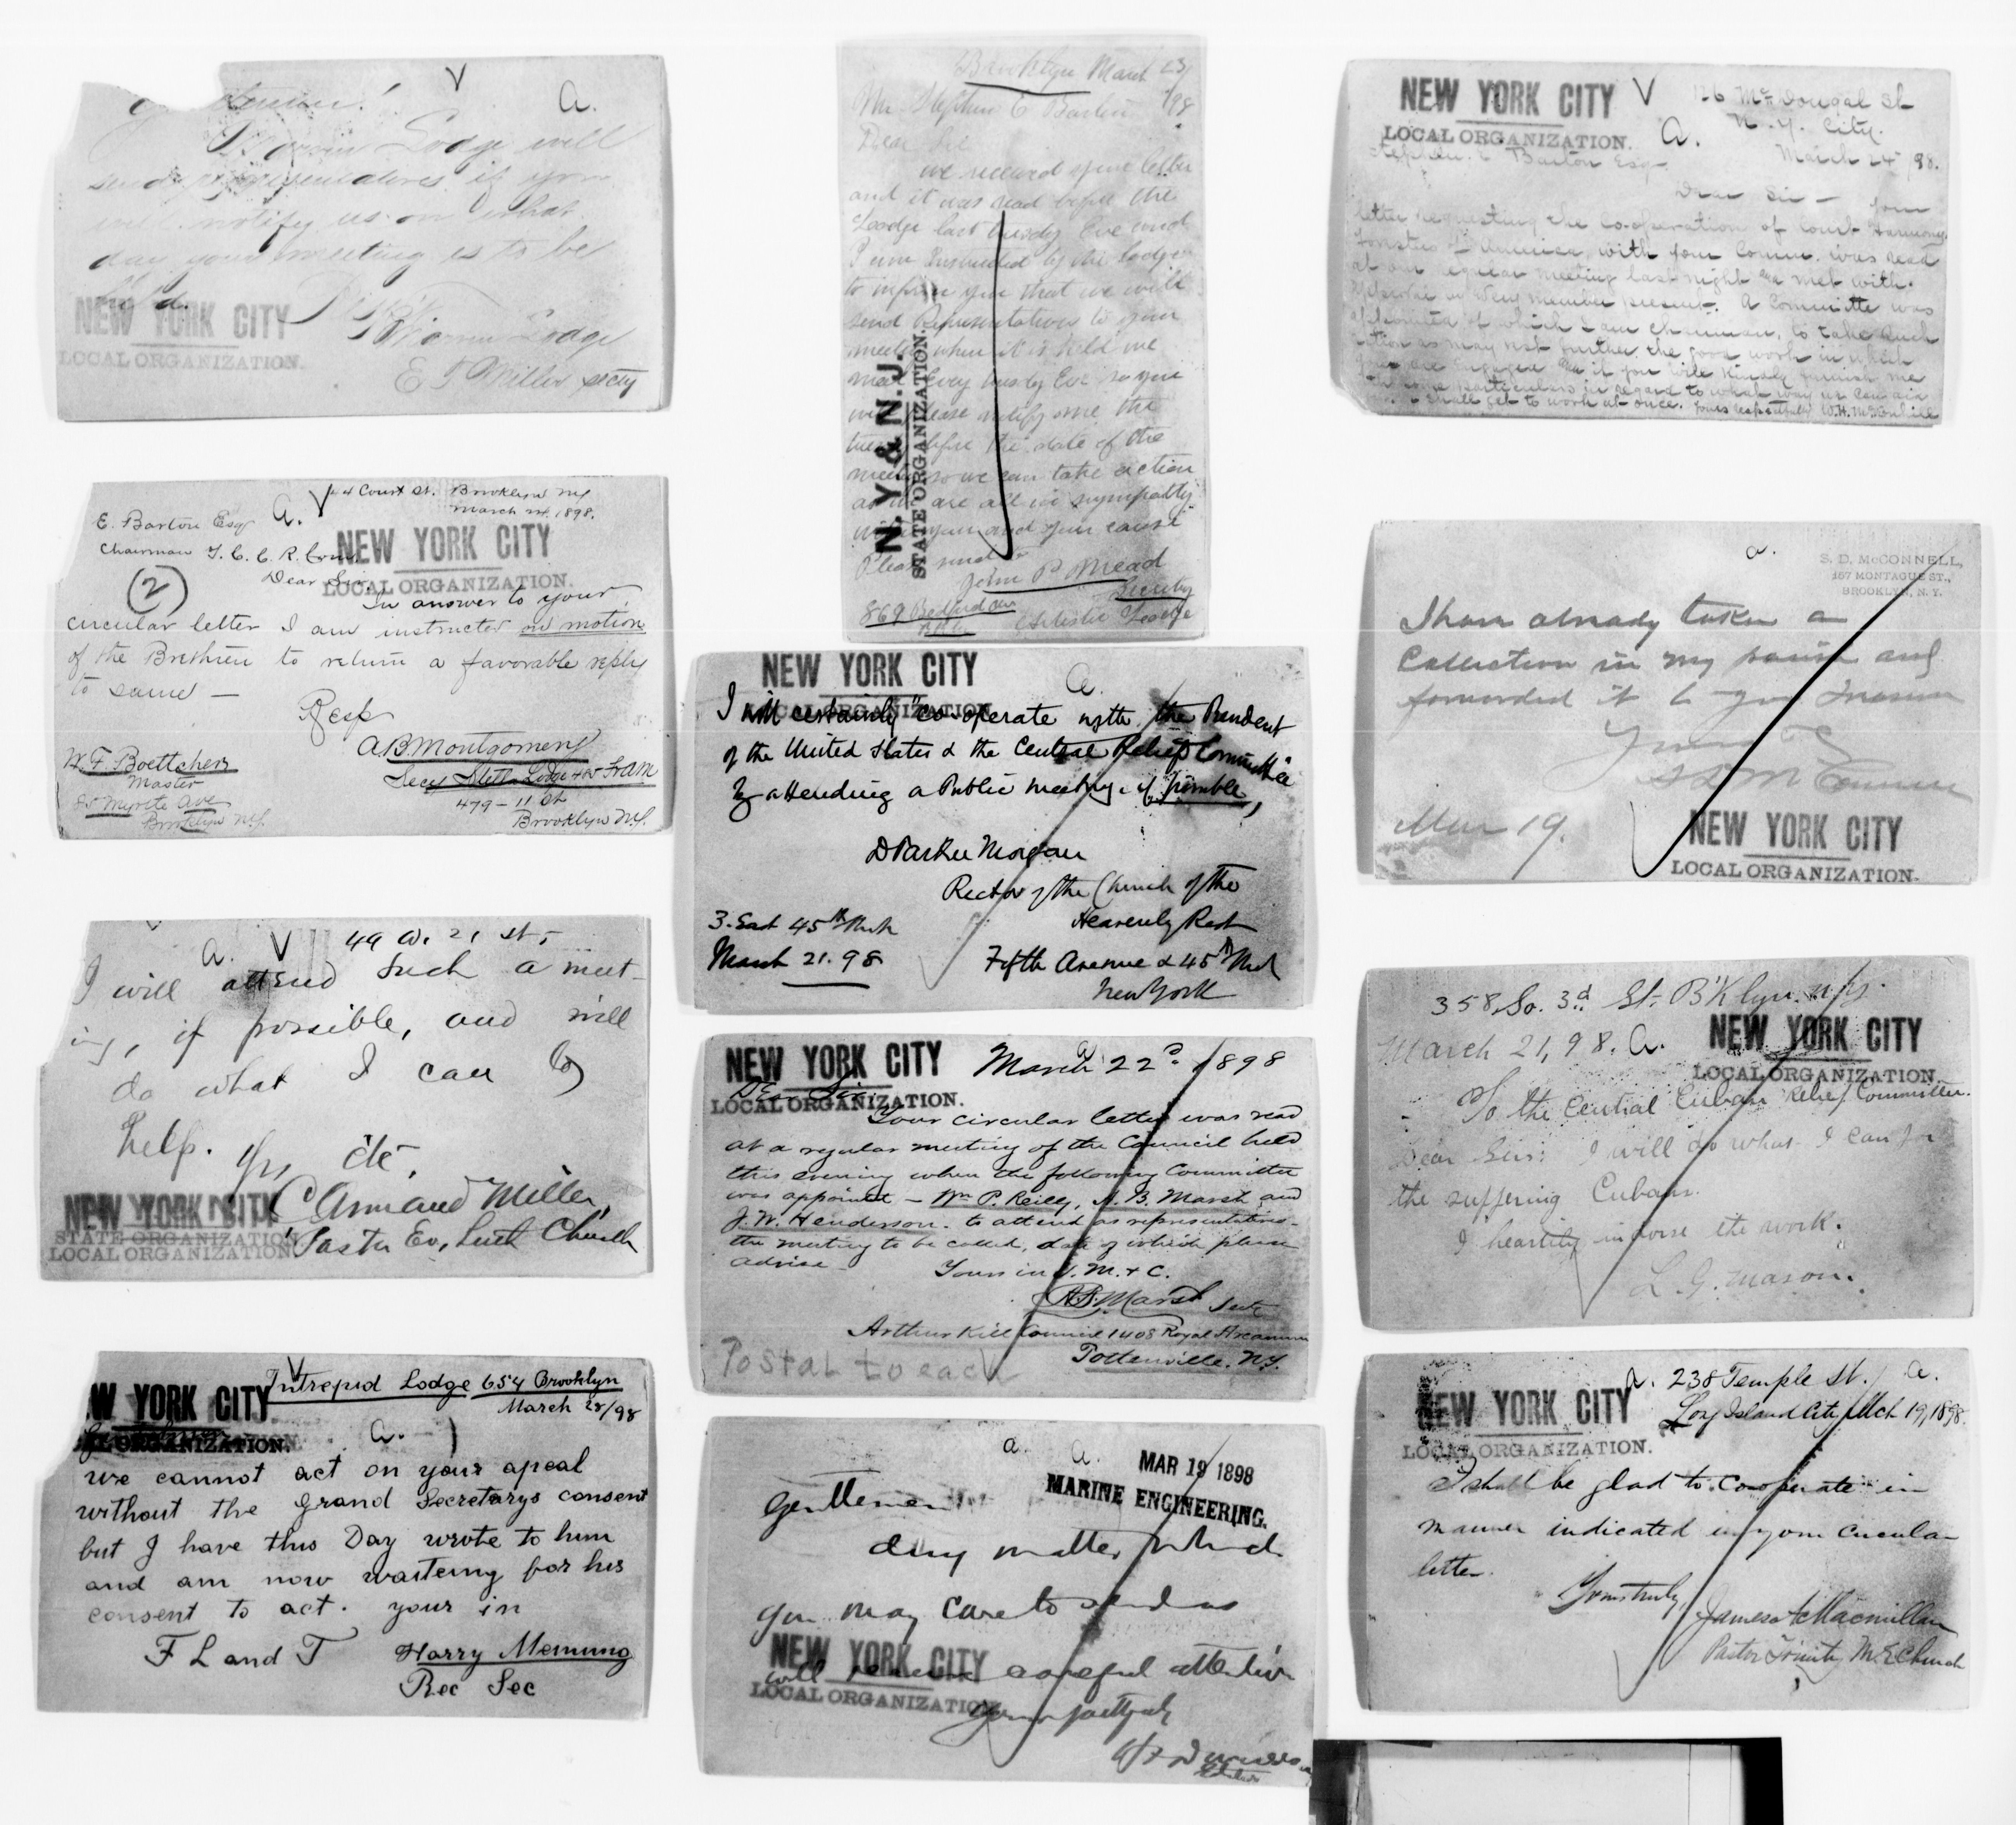 V
a.
Lodge will
send representatives if you
will notify us on what
day your meeting is to be
held.
NEW YORK CITY
LOCAL ORGANIZATION.
Lodge
E T Miller secty
44 Court St. Brooklyn NY
March 24. 1898.
E. Barton Esq
a. V
Chairman
NEW YORK CITY
LOCAL ORGANIZATION.
Dear Sir.
(2)
In answer to your
circular letter I am instructed on motion
of the Brethren to return a favorable reply
to same —
Resp
A B Montgomery
Secy Lodge
479 - 11 St
Brooklyn N.Y.
W. F. Boettcher
Master
Myrtle Ave
Brooklyn N.Y.
a. V
49 W. 21 st.
I will attend such a meet-
ing, if possible, and will
do what I can to
help. Yrs etc.,
C Armand Miller,
Pastor Ev. Luth Church
NEW YORK CITY
STATE ORGANIZATION
LOCAL ORGANIZATION
V
Intrepid Lodge 654 Brooklyn
March 28/98
W YORK CITY
L ORGANIZATION.
a.
we cannot act on your apeal
without the Grand Secretarys consent
but I have this Day wrote to him
and am now waiteing for his
consent to act. your in
F L and T
Harry
Rec Sec
Brooklyn March 23/98
Mr Stephen E Barton
Dear Sir
we received your letter
and it was read before the
Lodge last tusdy Eve and
I am Instructed by the lodge
to inform you that we will
send Representatives to your
meeting when it is held we
meet Evey tusdy Eve so you
will please notify me the
tuesdy before the date of the
meeting so we can take action
as we are all in sympathy
with you and your cause
Please send to
John P Mead
869 Bedford Ave
Lodge
N. Y. & N. J.
STATE ORGANIZATION.
NEW YORK CITY
LOCAL ORGANIZATION
a.
I will certainly co-operate with the President
of the United States & the Central Relief Committee
by attending a Public meeting - if possible,
D Parker Morgan
Rector of the Church of the
Heavenly Rest
Fifth Avenue & 45th Street
New York
3. East 45th Street
March 21. 98
NEW YORK CITY
LOCAL ORGANIZATION.
a.
March 22d 1898
Dear Sir
Your circular letter was read
at a regular meeting of the Council held
this evening when the following Committee
was appointed — Wm P. Reilly, A. B. Marsh and
J. W. Henderson. to attend as representatives
the meeting to be called, date of which please
advise —
Yours in V. M. & C.
A B. Marsh Secty
Arthur Kill Council 1408 Royal Arcanum
Tottenville. N.Y.
Postal to each
a. a.
MAR 19 1898
MARINE ENGINEERING.
Gentlemen:
Any matter which
you may care to send us
will receive careful attention
NEW YORK CITY
LOCAL ORGANIZATION
Yours faithfully
NEW YORK CITY
LOCAL ORGANIZATION.
V
a.
126 McDougal St
N. Y. City.
March 24 98.
Stephen E Barton Esq
Dear Sir — Your
letter requesting the co-operation of Court Harmony
Foresters of America, with your Comm. was read
at our regular meeting last night and met with
approval of every member present. A Committe was
appointed of which I am chairman, to take such
action as may best further the good work in which
you are engaged and if you will kindly furnish me
with some particulars in regard to what way we can aid
we shall get to work at once. Yours respectfully W.H.
a.
S. D. McCONNELL,
157 MONTAGUE ST.,
BROOKLYN, N. Y.
I have already taken a
Collection in my parish and
forwarded it to your Treasurer
Yours
S D McConnell
Mar 19.
NEW YORK CITY
LOCAL ORGANIZATION.
358 So. 3d St. B'Klyn. N.Y.
March 21, 98. a.
NEW YORK CITY
LOCAL ORGANIZATION.
To the Central Cuban Relief Committee.
Dear Sirs: I will do what I can for
the suffering Cubans.
I heartily indorse the work.
L. G. Mason.
a. 238 Temple St. a.
NEW YORK CITY
LOCAL ORGANIZATION.
Long Island City Mch 19, 1898.
I shall be glad to cooperate in
manner indicated in your circular
letter.
Yours truly,
James Macmillan
Pastor Trinity M. E Church